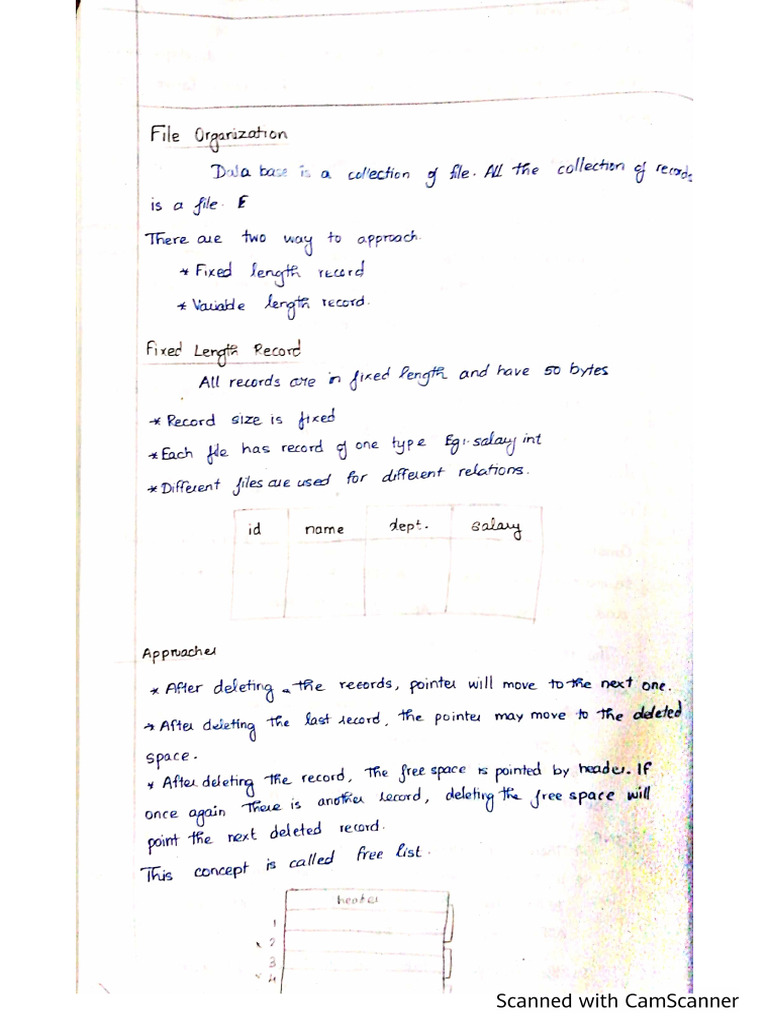 File Organization
Data base is a collection of file. All the collection of records
is a file. E
There are two way to approach.
* Fixed length record
* Variable length record.
Fixed Length Record
All records are in fixed length and have 50 bytes
* Record size is fixed
* Each file has record of one type Eg:- salary int
* Different files are used for different relations.
id name dept. salary
Approaches
* After deleting the records, pointer will move to the next one.
* After deleting the last record, the pointer may move to the deleted
space.
* After deleting the record, the free space is pointed by header. If
once again there is another record, deleting the free space will
point the next deleted record.
This concept is called free list.
header
1
x 2
3
x 4
Scanned with CamScanner